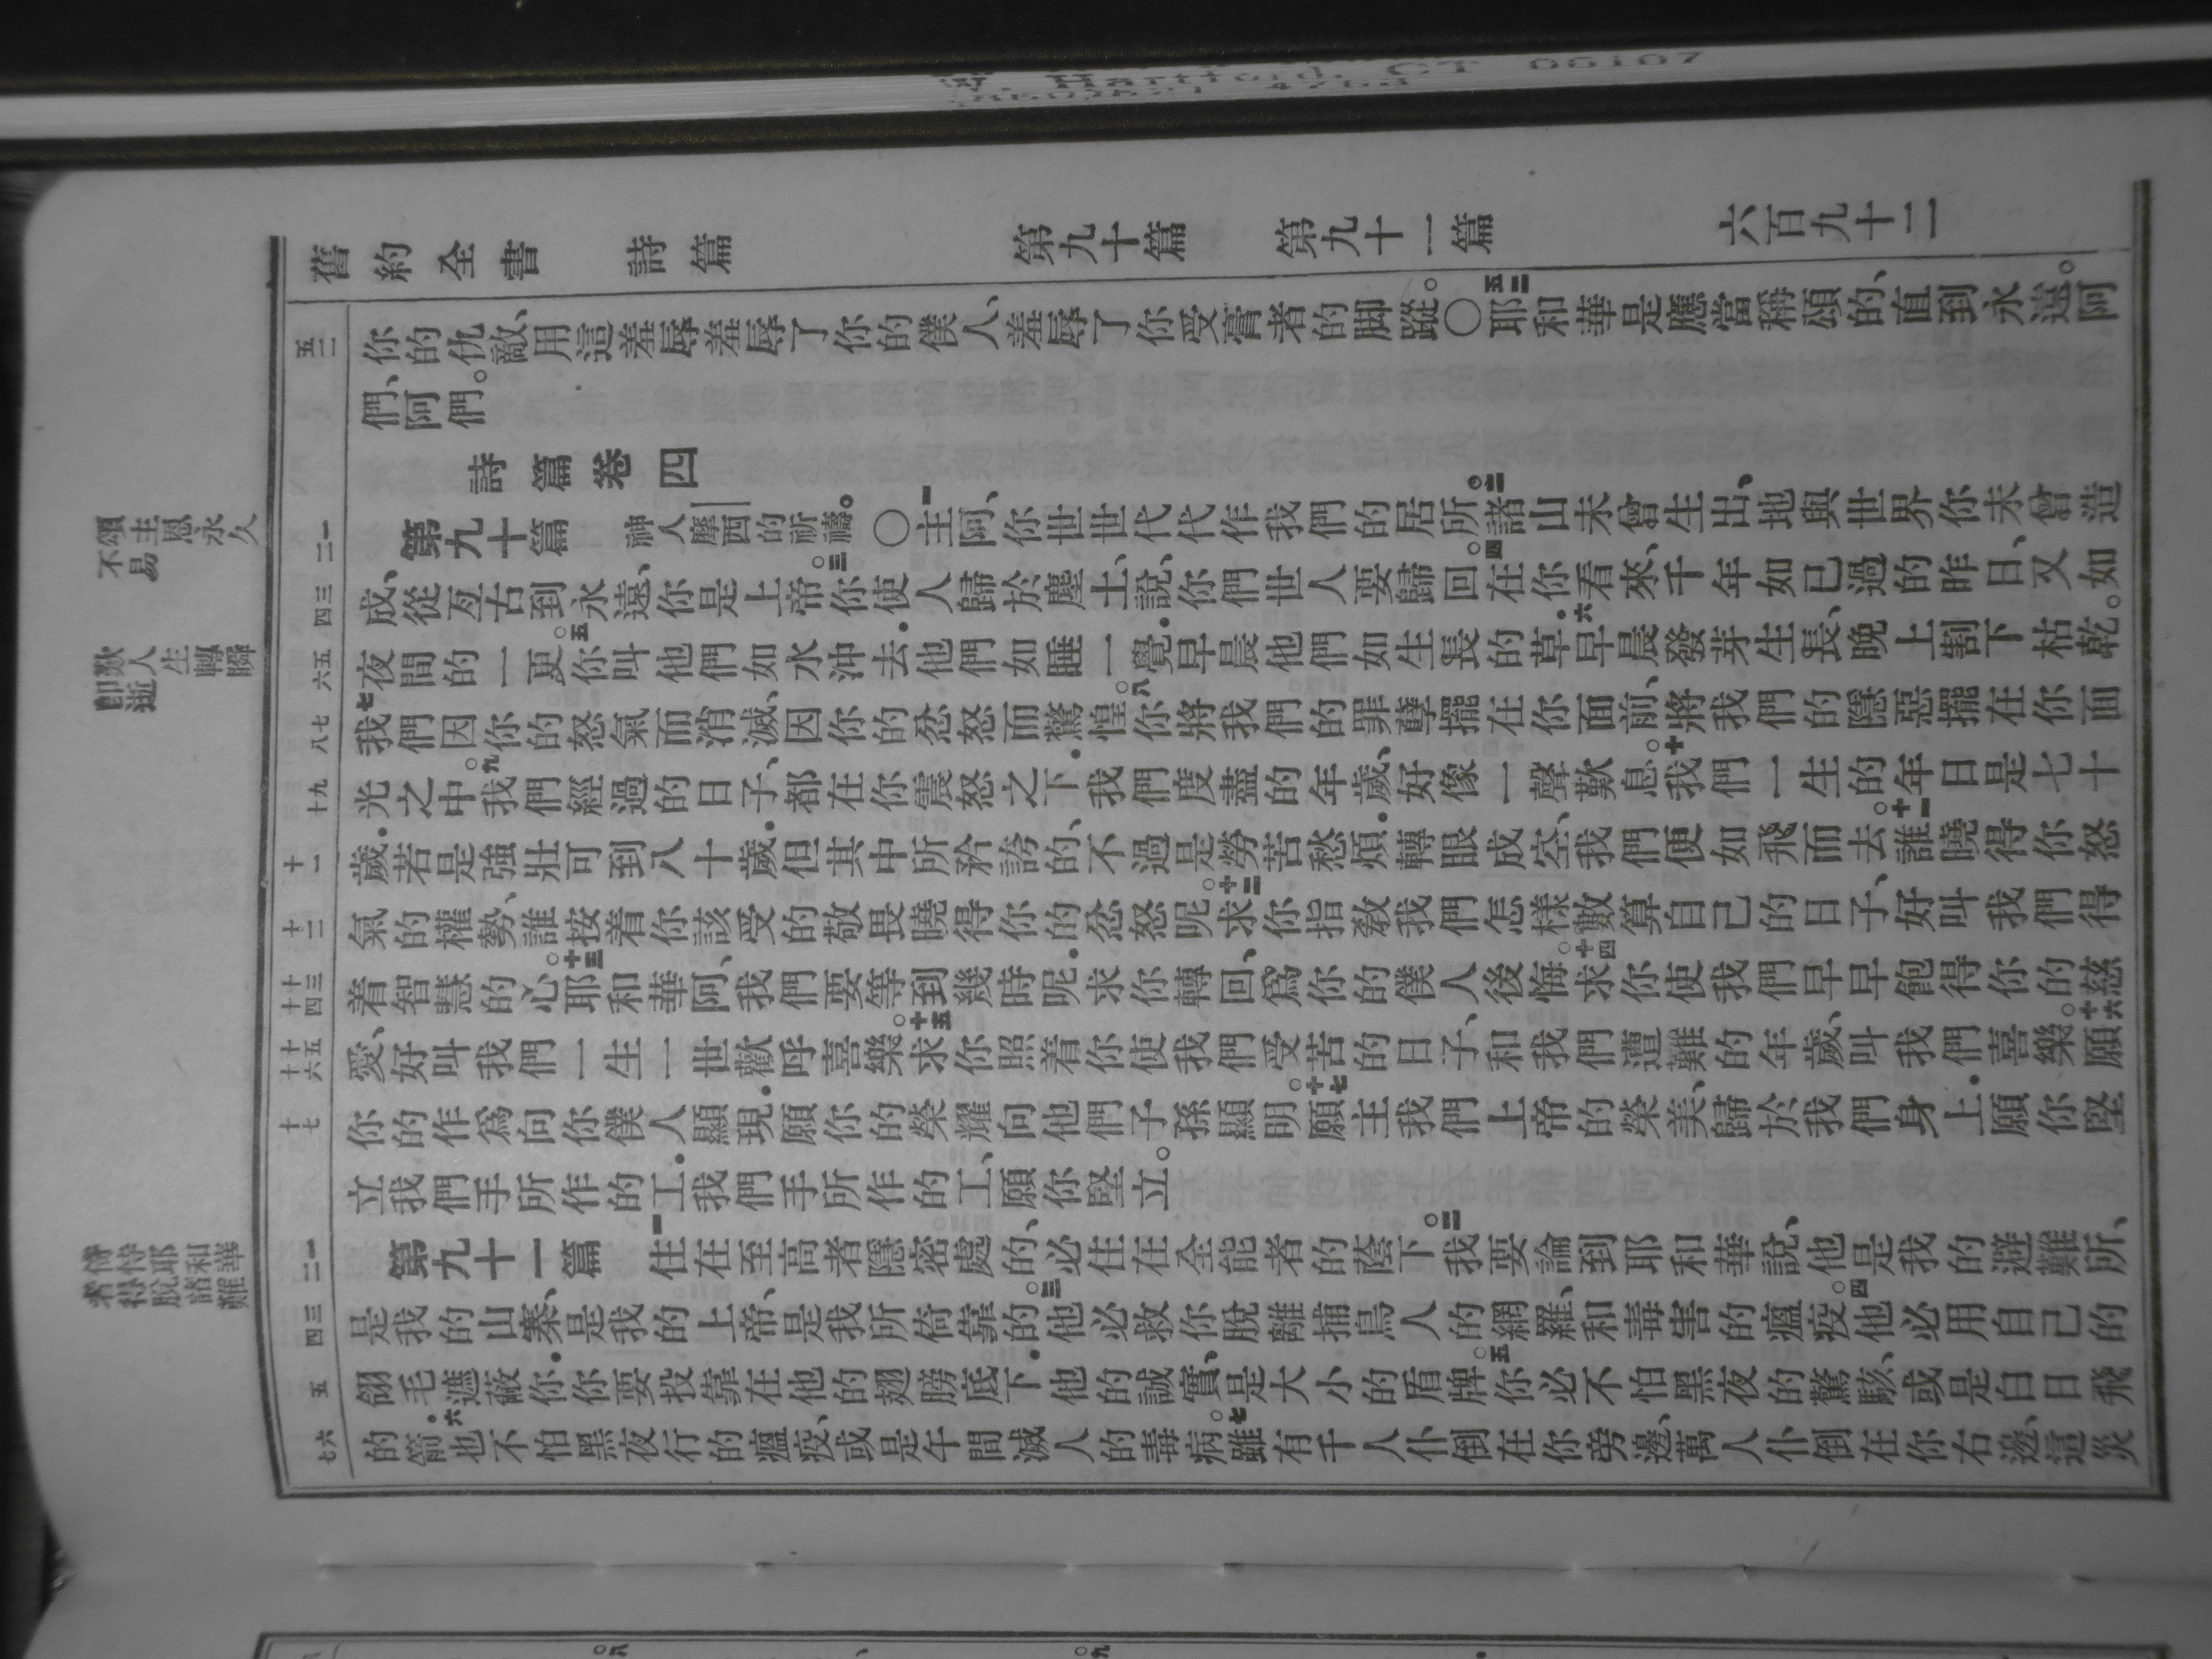 W. Hartford, CT 06107
舊約全書 詩篇 第九十篇 第九十一篇 六百九十二
五二 你的仇敵、用這羞辱羞辱了你的僕人、羞辱了你受膏者的脚蹤。〇五二耶和華是應當稱頌的、直到永遠。阿
們、阿們。
詩篇卷四
頌主恩永久
不易
二一 第九十篇 神人摩西的祈禱。〇一主阿、你世世代代作我們的居所。二諸山未曾生出、地與世界你未曾造
四三 成、從亙古到永遠、你是上帝。三你使人歸於塵土、說、你們世人要歸回。四在你看來、千年如已過的昨日、又如
歎人生轉瞬
卽逝
六五 夜間的一更。五你叫他們如水沖去.他們如睡一覺.早晨他們如生長的草.六早晨發芽生長、晚上割下枯乾。
八七 七我們因你的怒氣而消滅、因你的忿怒而驚惶。八你將我們的罪孽擺在你面前、將我們的隱惡擺在你面
十九 光之中。九我們經過的日子、都在你震怒之下.我們度盡的年歲、好像一聲歎息。十我們一生的年日是七十
十一 歲.若是強壯可到八十歲.但其中所矜誇的、不過是勞苦愁煩.轉眼成空、我們便如飛而去。十一誰曉得你怒
十二 氣的權勢、誰按着你該受的敬畏曉得你的忿怒呢。十二求你指敎我們怎樣數算自己的日子、好叫我們得
十四十三 着智慧的心。十三耶和華阿、我們要等到幾時呢.求你轉回、爲你的僕人後悔。十四求你使我們早早飽得你的慈
十六十五 愛、好叫我們一生一世歡呼喜樂。十五求你照着你使我們受苦的日子、和我們遭難的年歲、叫我們喜樂。十六願
十七 你的作爲向你僕人顯現.願你的榮耀向他們子孫顯明。十七願主我們上帝的榮美、歸於我們身上.願你堅
立我們手所作的工.我們手所作的工、願你堅立。
倚恃耶和華
者得脫諸難
二一 第九十一篇 一住在至高者隱密處的、必住在全能者的蔭下。二我要論到耶和華說、他是我的避難所、
四三 是我的山寨、是我的上帝、是我所倚靠的。三他必救你脫離捕鳥人的網羅、和毒害的瘟疫。四他必用自己的
五 翎毛遮蔽你.你要投靠在他的翅膀底下.他的誠實、是大小的盾牌。五你必不怕黑夜的驚駭、或是白日飛
七六 的箭.六也不怕黑夜行的瘟疫、或是午間滅人的毒病。七雖有千人仆倒在你旁邊、萬人仆倒在你右邊、這災